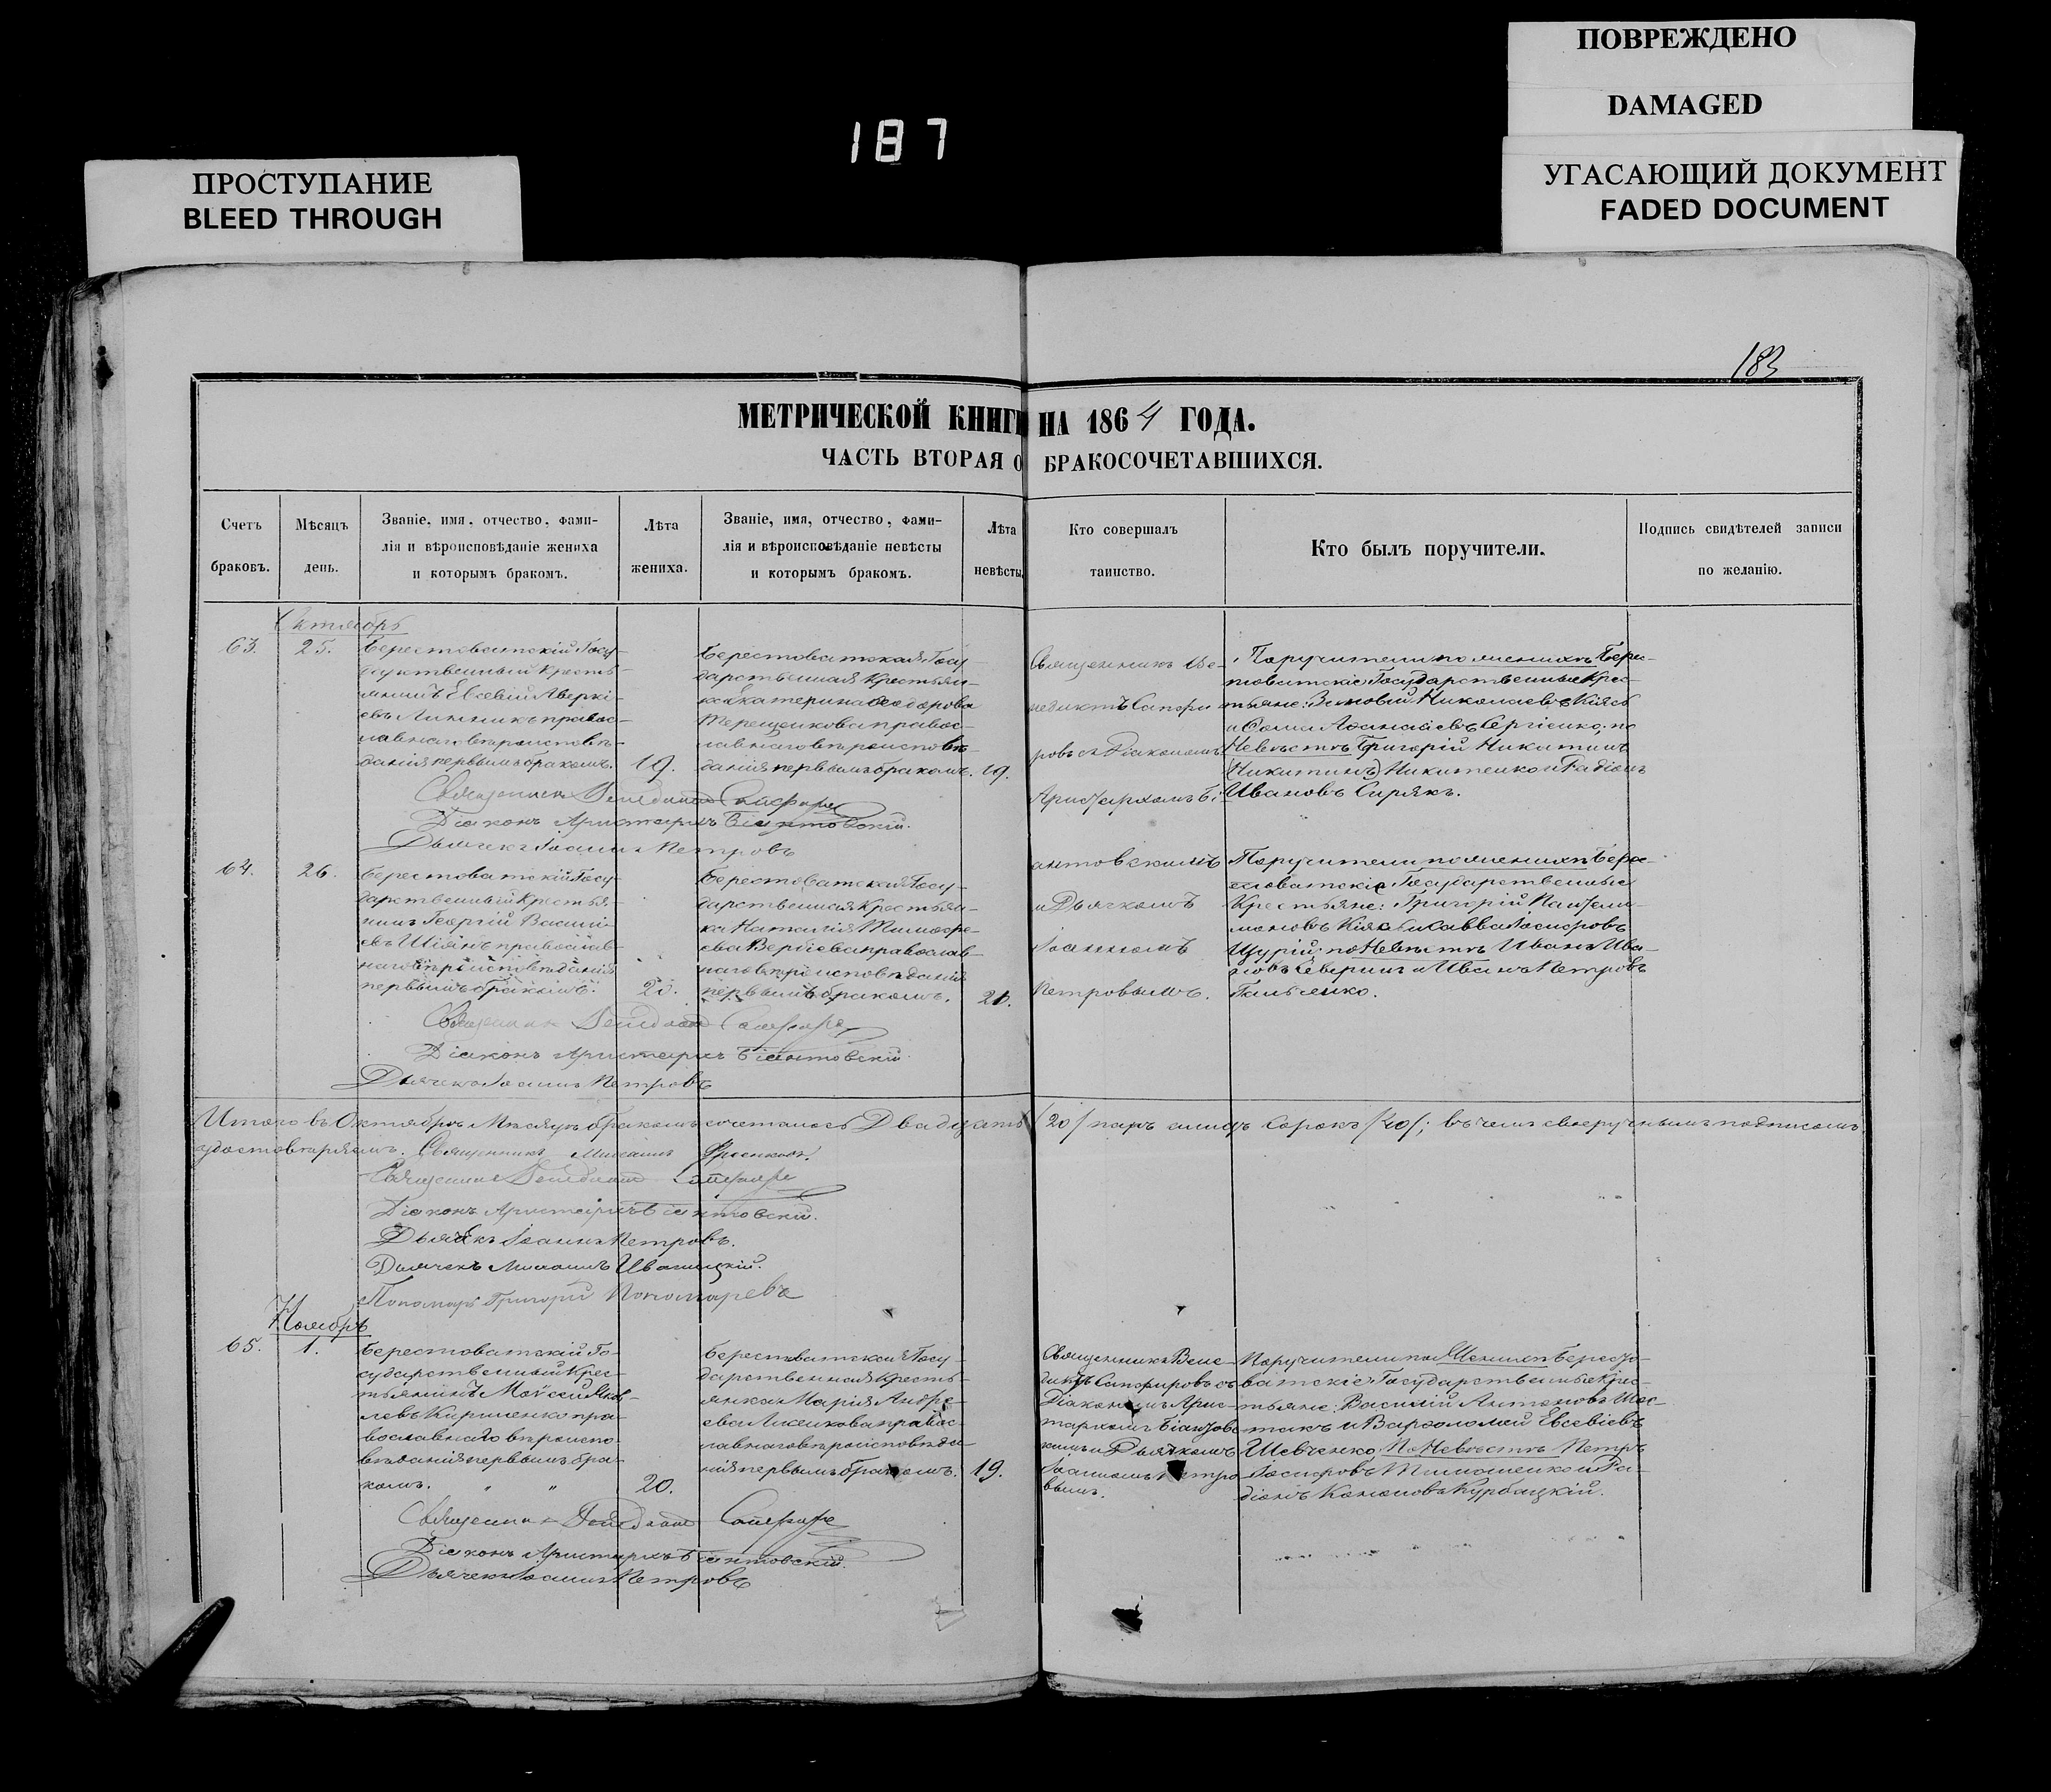 ПОВРЕЖДЕНО
DAMAGED
187
ПРОСТУПАНИЕ
BLEED THROUGH
УГАСАЮЩИЙ ДОКУМЕНТ
FADED DOCUMENT
183
МЕТРИЧЕСКОЙ КНИГИ НА 1864 ГОДА.
ЧАСТЬ ВТОРАЯ О БРАКОСОЧЕТАВШИХСЯ.
Счетъ
браковъ.
Мѣсяцъ
день.
Званіе, имя, отчество, фами-
лія и вѣроисповѣданіе жениха
и которымъ бракомъ.
Лѣта
жениха.
Званіе, имя, отчество, фами-
лія и вѣроисповѣданіе невѣсты
и которымъ бракомъ.
Лѣта
невѣсты.
Кто совершалъ
таинство.
Кто былъ поручители.
Подпись свидѣтелей записи
по желанію.
Октябрь
63.
25.
Берестоватскій Госу-
дарственный Кресть-
янинъ Евсевій Аверкі-
евъ Линникъ правос-
лавнаго вѣроисповѣ-
данія первымъ бракомъ.
19.
Берестоватская Госу-
дарственная Крестьян-
ка Екатерина Ѳеодорова
Терещенкова правос-
лавнаго вѣроисповѣ-
данія первымъ бракомъ.
19.
Священникъ Ве-
недиктъ Сапфи
ровъ съ Діакономъ
Аристархомъ Бі-
антовскимъ
и Дьячкомъ
Іоанномъ
Петровымъ.
Поручители по женихѣ Берес-
товатскіе Государственные Крес-
тьяне: Зиновій Николаевъ Кіясъ
и Ѳома Аѳанасіевъ Сергіенко; по
Невѣстѣ Григорій Никитинъ
(Никитинъ) Никитенко и Радіонъ
Ивановъ Сирякъ.
Священникъ Венедиктъ Сапфировъ
Діаконъ Аристархъ Біантовскій.
Дьячекъ Іоаннъ Петровъ
64.
26.
Берестоватскій Госу-
дарственный Крестья-
нинъ Георгій Васили-
евъ православ-
наго вѣроисповѣданія
первымъ бракомъ.
Берестоватская Госу-
дарственная Крестьян-
ка Наталія Тимоѳе-
ева православ-
наго вѣроисповѣданія
первымъ бракомъ.
21.
Поручители по женихѣ Бере-
стоватскіе Государственные
Крестьяне: Григорій Пантели-
моновъ Кіясъ и Савва Іосифовъ
Щурій; по Невѣстѣ Иванъ Ива-
новъ Северинъ и Иванъ Петровъ
Священникъ Венедиктъ Сапфировъ
Діаконъ Аристархъ Біантовскій
Дьячекъ Іоаннъ Петровъ
Итого въ Октябрѣ Мѣсяцѣ бракомъ сочеталось Двадцать (20) паръ а лицъ Сорокъ (40); въ чемъ своеручнымъ подписомъ
удостовѣряемъ. Священникъ Михаилъ
Священникъ Венедиктъ Сапфировъ
Діаконъ Аристархъ Біантовскій.
Дьячекъ Іоаннъ Петровъ.
Дьячекъ Михаилъ Иваницкій.
Пономарь Григорій Пономаревъ
Ноябрь
65.
1.
Берестоватскій Го-
сударственный Крес-
тьянинъ Моѵсей Яков-
левъ Кириченко пра-
вославнаго вѣроиспо-
вѣданія первымъ бра-
комъ. " "
20.
Берестоватская Госу-
дарственная Кресть-
янка Марія Андре-
ева правос-
лавнаго вѣроисповѣда-
нія первымъ бракомъ.
19.
Священникъ Вене-
диктъ Сапфировъ съ
Діакономъ Арис-
тархомъ Біантовс-
кимъ и Дьячкомъ
Іоанномъ Петро-
вымъ.
Поручители по Женихѣ Бересто-
ватскіе Государственные Крес-
тьяне: Василій Антоновъ Шос-
такъ и Варѳоломей Евсевіевъ
Шевченко, по Невѣстѣ Петръ
Іосифовъ Тимошенко и Ра-
діонъ Кононовъ Курбацкій.
Священникъ Венедиктъ Сапфировъ
Діаконъ Аристархъ Біантовскій.
Дьячекъ Іоаннъ Петровъ